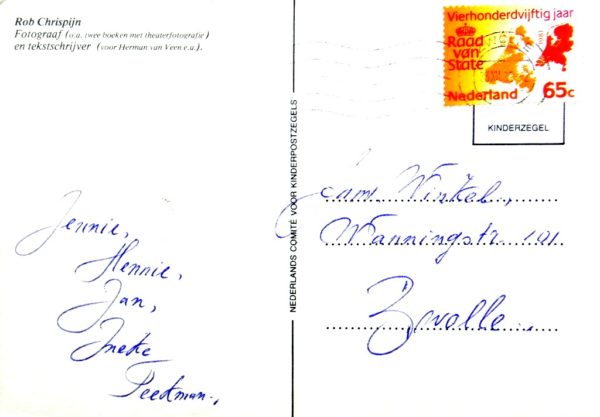 Rob Chrispijn
Fotograaf (o.a. twee boeken met theaterfotografie)
en tekstschrijver (voor Herman van Veen e.a.).
Jennie,
Hennie,
Jan,
Ineke
Peekman.,
NEDERLANDS COMITÉ VOOR KINDERPOSTZEGELS
Vierhonderdvijftig jaar
Raad
van
State
1981
Nederland 65c
KINDERZEGEL
Fam. Winkel.,
Wanningstr. 101.
Zwolle.